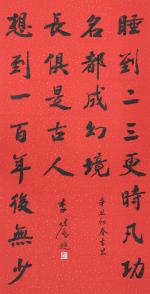 睡到二三更時凡功
名都成幻境
想到一百年後無少
長俱是古人
辛丑初春吉旦
李